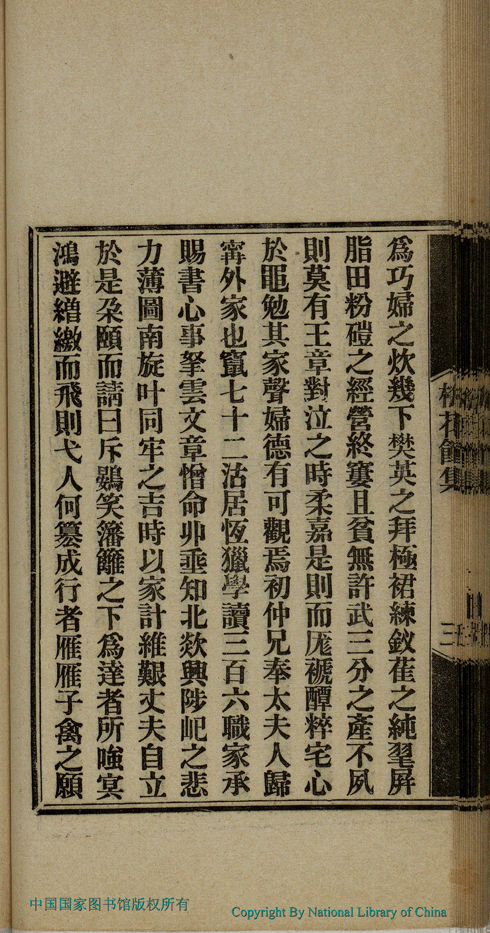 為巧婦之炊幾下樊英之拜極裙練釵萑之純毣屏
脂田粉磑之經營終窶且貧無許武三分之產不夙
則莫有王章對泣之時柔嘉是則而厖禠醰粹宅心
於黽勉其家聲婦德有可觀焉初仲兄奉太夫人歸
甯外家也竄七十二沽居恆獵學讀三百六職家承
賜書心事拏雲文章憎命丱垂知北欻興陟屺之悲
力薄圖南旋叶同牢之吉時以家計維艱丈夫自立
於是朶頤而請曰斥鷃笑藩籬之下為達者所嗤冥
鴻避繒繳而飛則弋人何篡成行者雁雁子禽之願
集
三
中国国家图书馆版权所有
Copyright By National Library of China